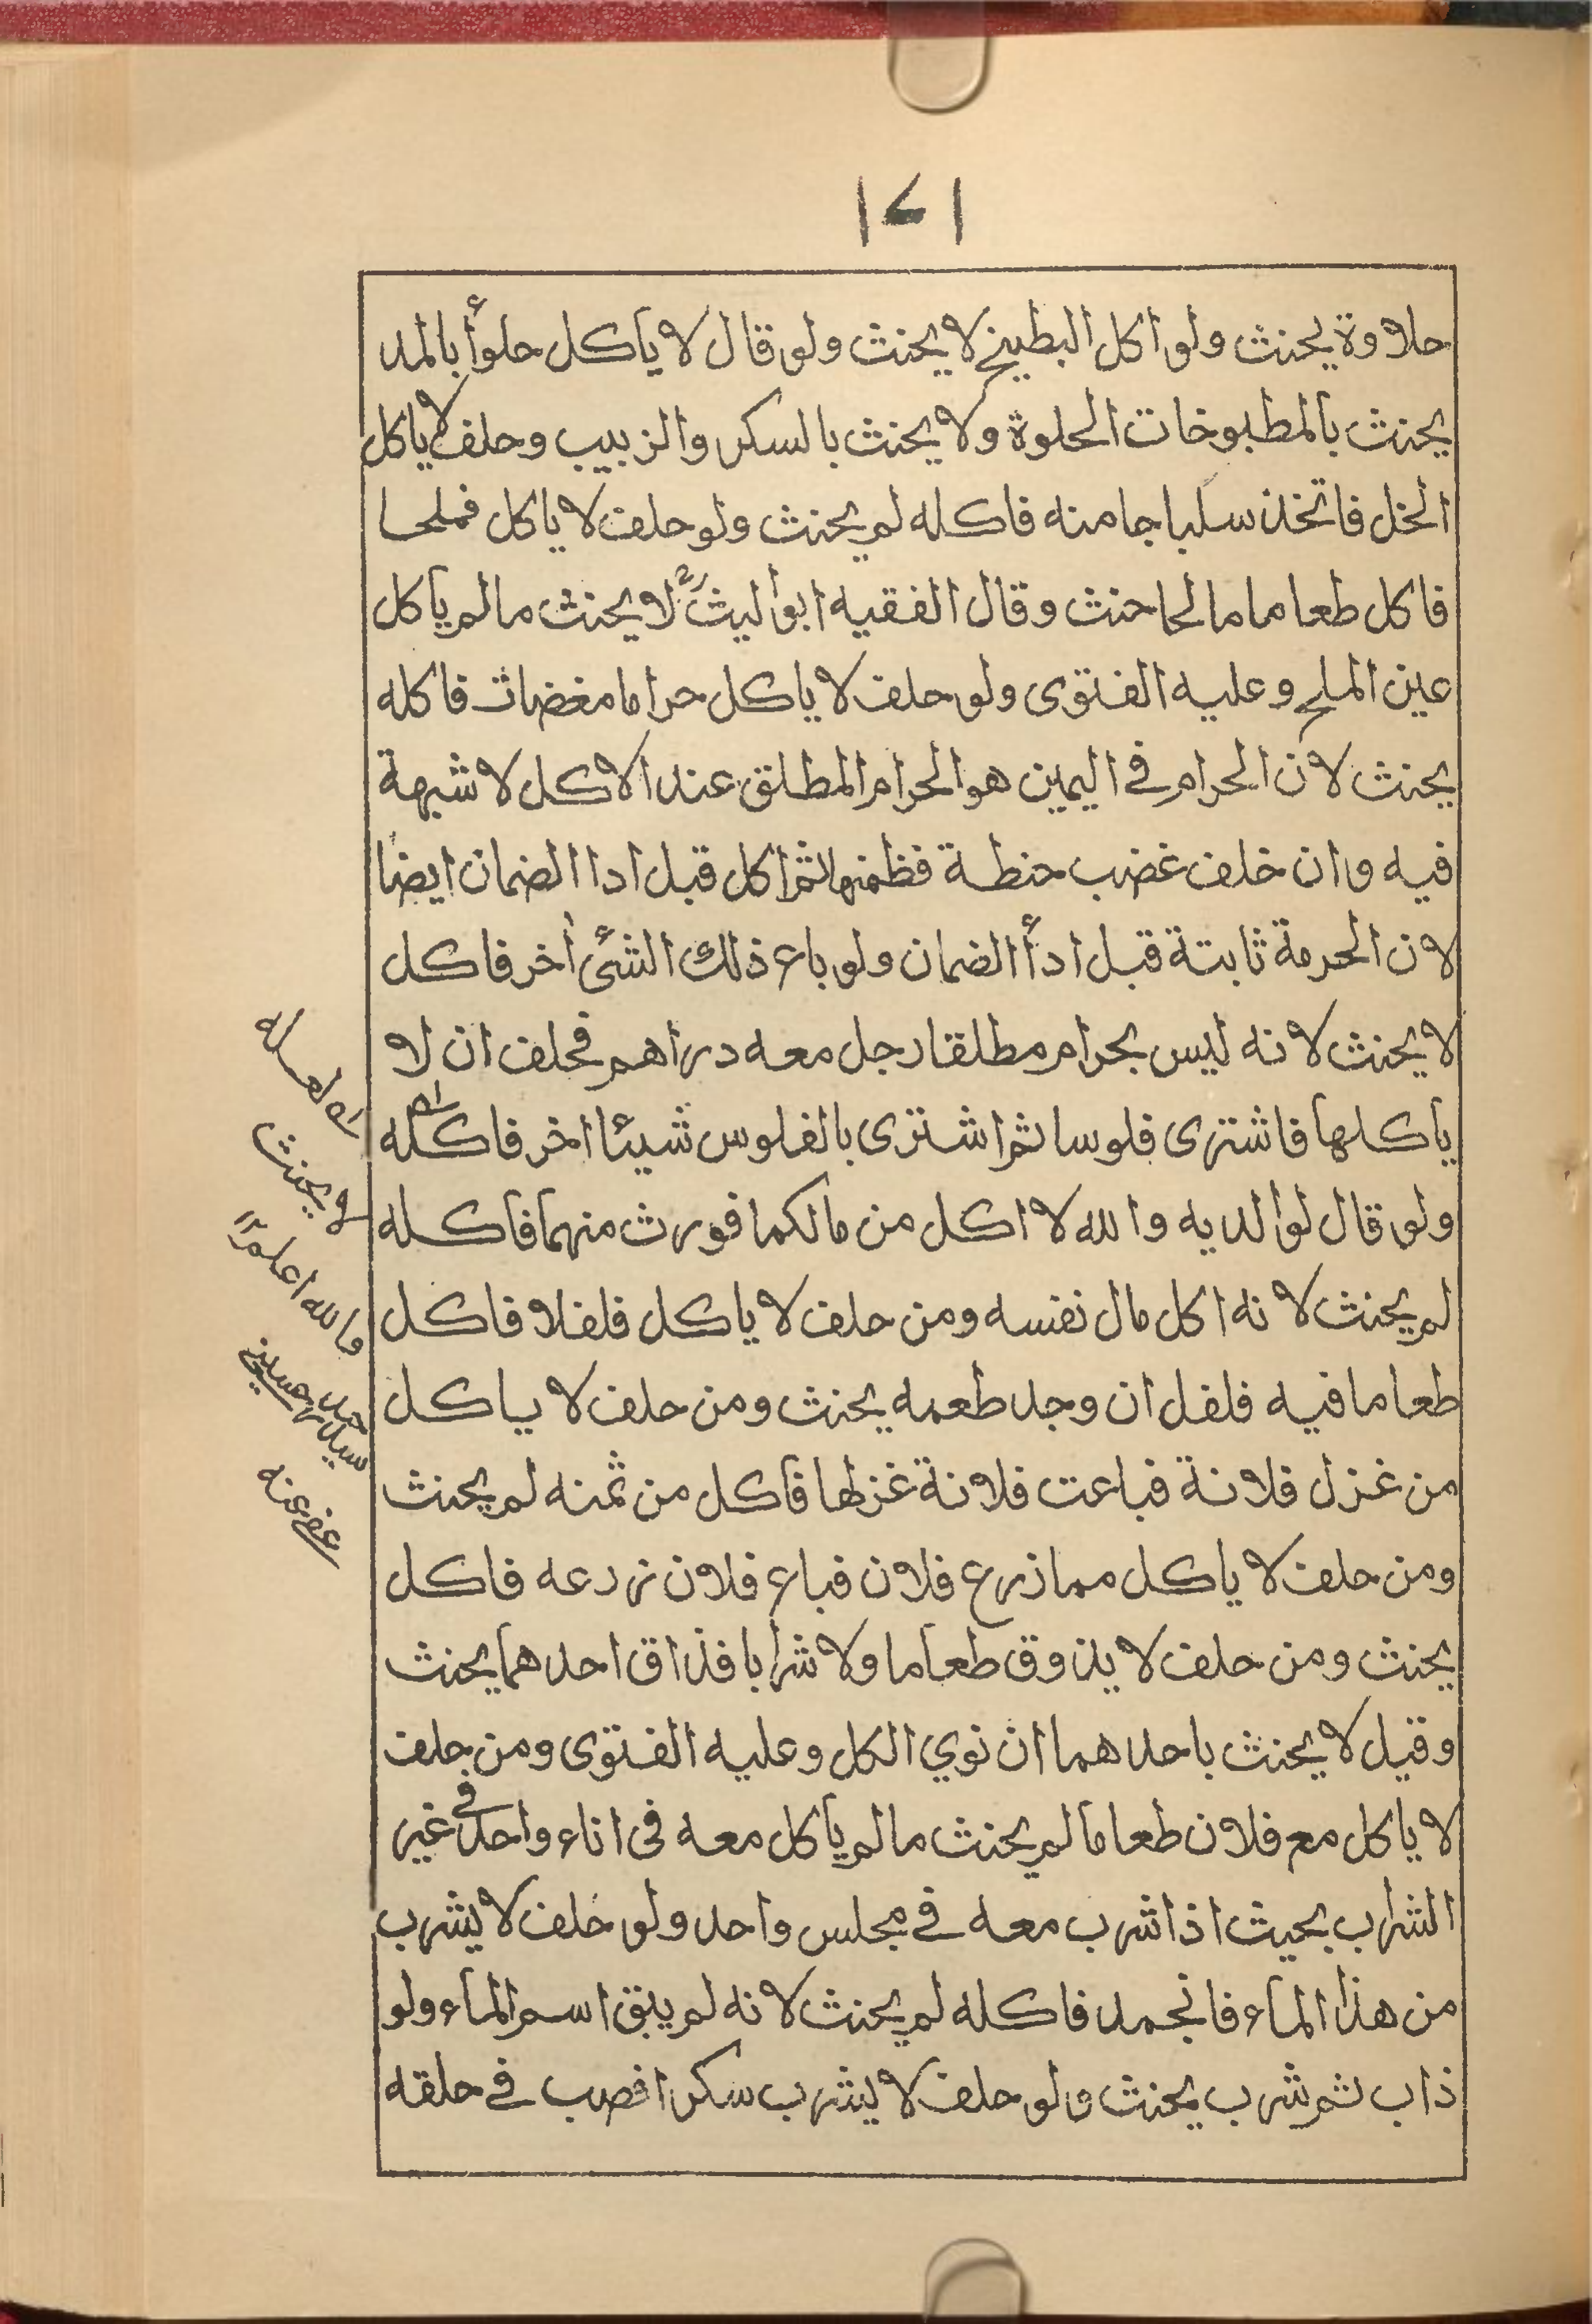 ١٢١
حلاوة يحنث ولو اكل البطيخ لا يحنث ولو قال لا ياكل حلوأ بالمد
يحنث بالمطبوخات الحلوة ولا يحنث بالسكر والزبيب وحلف لا ياكل
الخل فاتخذ سكباجا منه فاكله لم يحنث ولو حلف لا ياكل فملحا
فاكل طعاما مالحا حنث وقال الفقيه ابوا ليث لا يحنث ما لم ياكل
عين الملح وعليه الفتوى ولو حلف لا ياكل حراما مغضات فاكله
يحنث لان الحرام في اليمين هو الحرام المطلق عند الاكل لا شبهة
فيه وان خلف غضب حنطة فظمنها ثم اكل قبل ادا الضمان ايضا
لان الحرمة ثابتة قبل ادأ الضمان ولو باع ذلك الشئ أخر فاكل
لا يحنث لانه ليس بحرام مطلقا رجل معه دراهم فحلف ان لا
ياكلها فاشترى فلوسا ثم اشترى بالفلوس شيئا اخر فاكله
ولو قال لوالديه والله لا اكل من مالكما فورث منهما فاكله
لم يحنث لانه اكل مال نفسه ومن حلف لا ياكل فلفلا فاكل
طعاما فيه فلفل ان وجد طعمه يحنث ومن حلف لا ياكل
من غزل فلانة فباعت فلانة غزلها فاكل من ثمنه لم يحنث
ومن حلف لا ياكل مما زرع فلان فباع فلان زرعه فاكل
يحنث ومن حلف لا يذوق طعاما ولا شرابا فذاق احدهما يحنث
وقيل لا يحنث باحدهما ان نوي الكل وعليه الفتوى ومن حلف
لا ياكل مع فلان طعاما لم يحنث ما لم ياكل معه في اناء واحد في غير
الشراب بحيث اذا شرب معه في مجلس واحد ولو خلف لا يشرب
من هذا الماء فانجمد فاكله لم يحنث لانه لم يبق اسم الماء ولو
ذاب ثم شرب يحنث ولو حلف لا يشرب سكرا فصب في حلقه
لا يحنث
والله اعلم ١٢
سيد حسين
عفي عنه